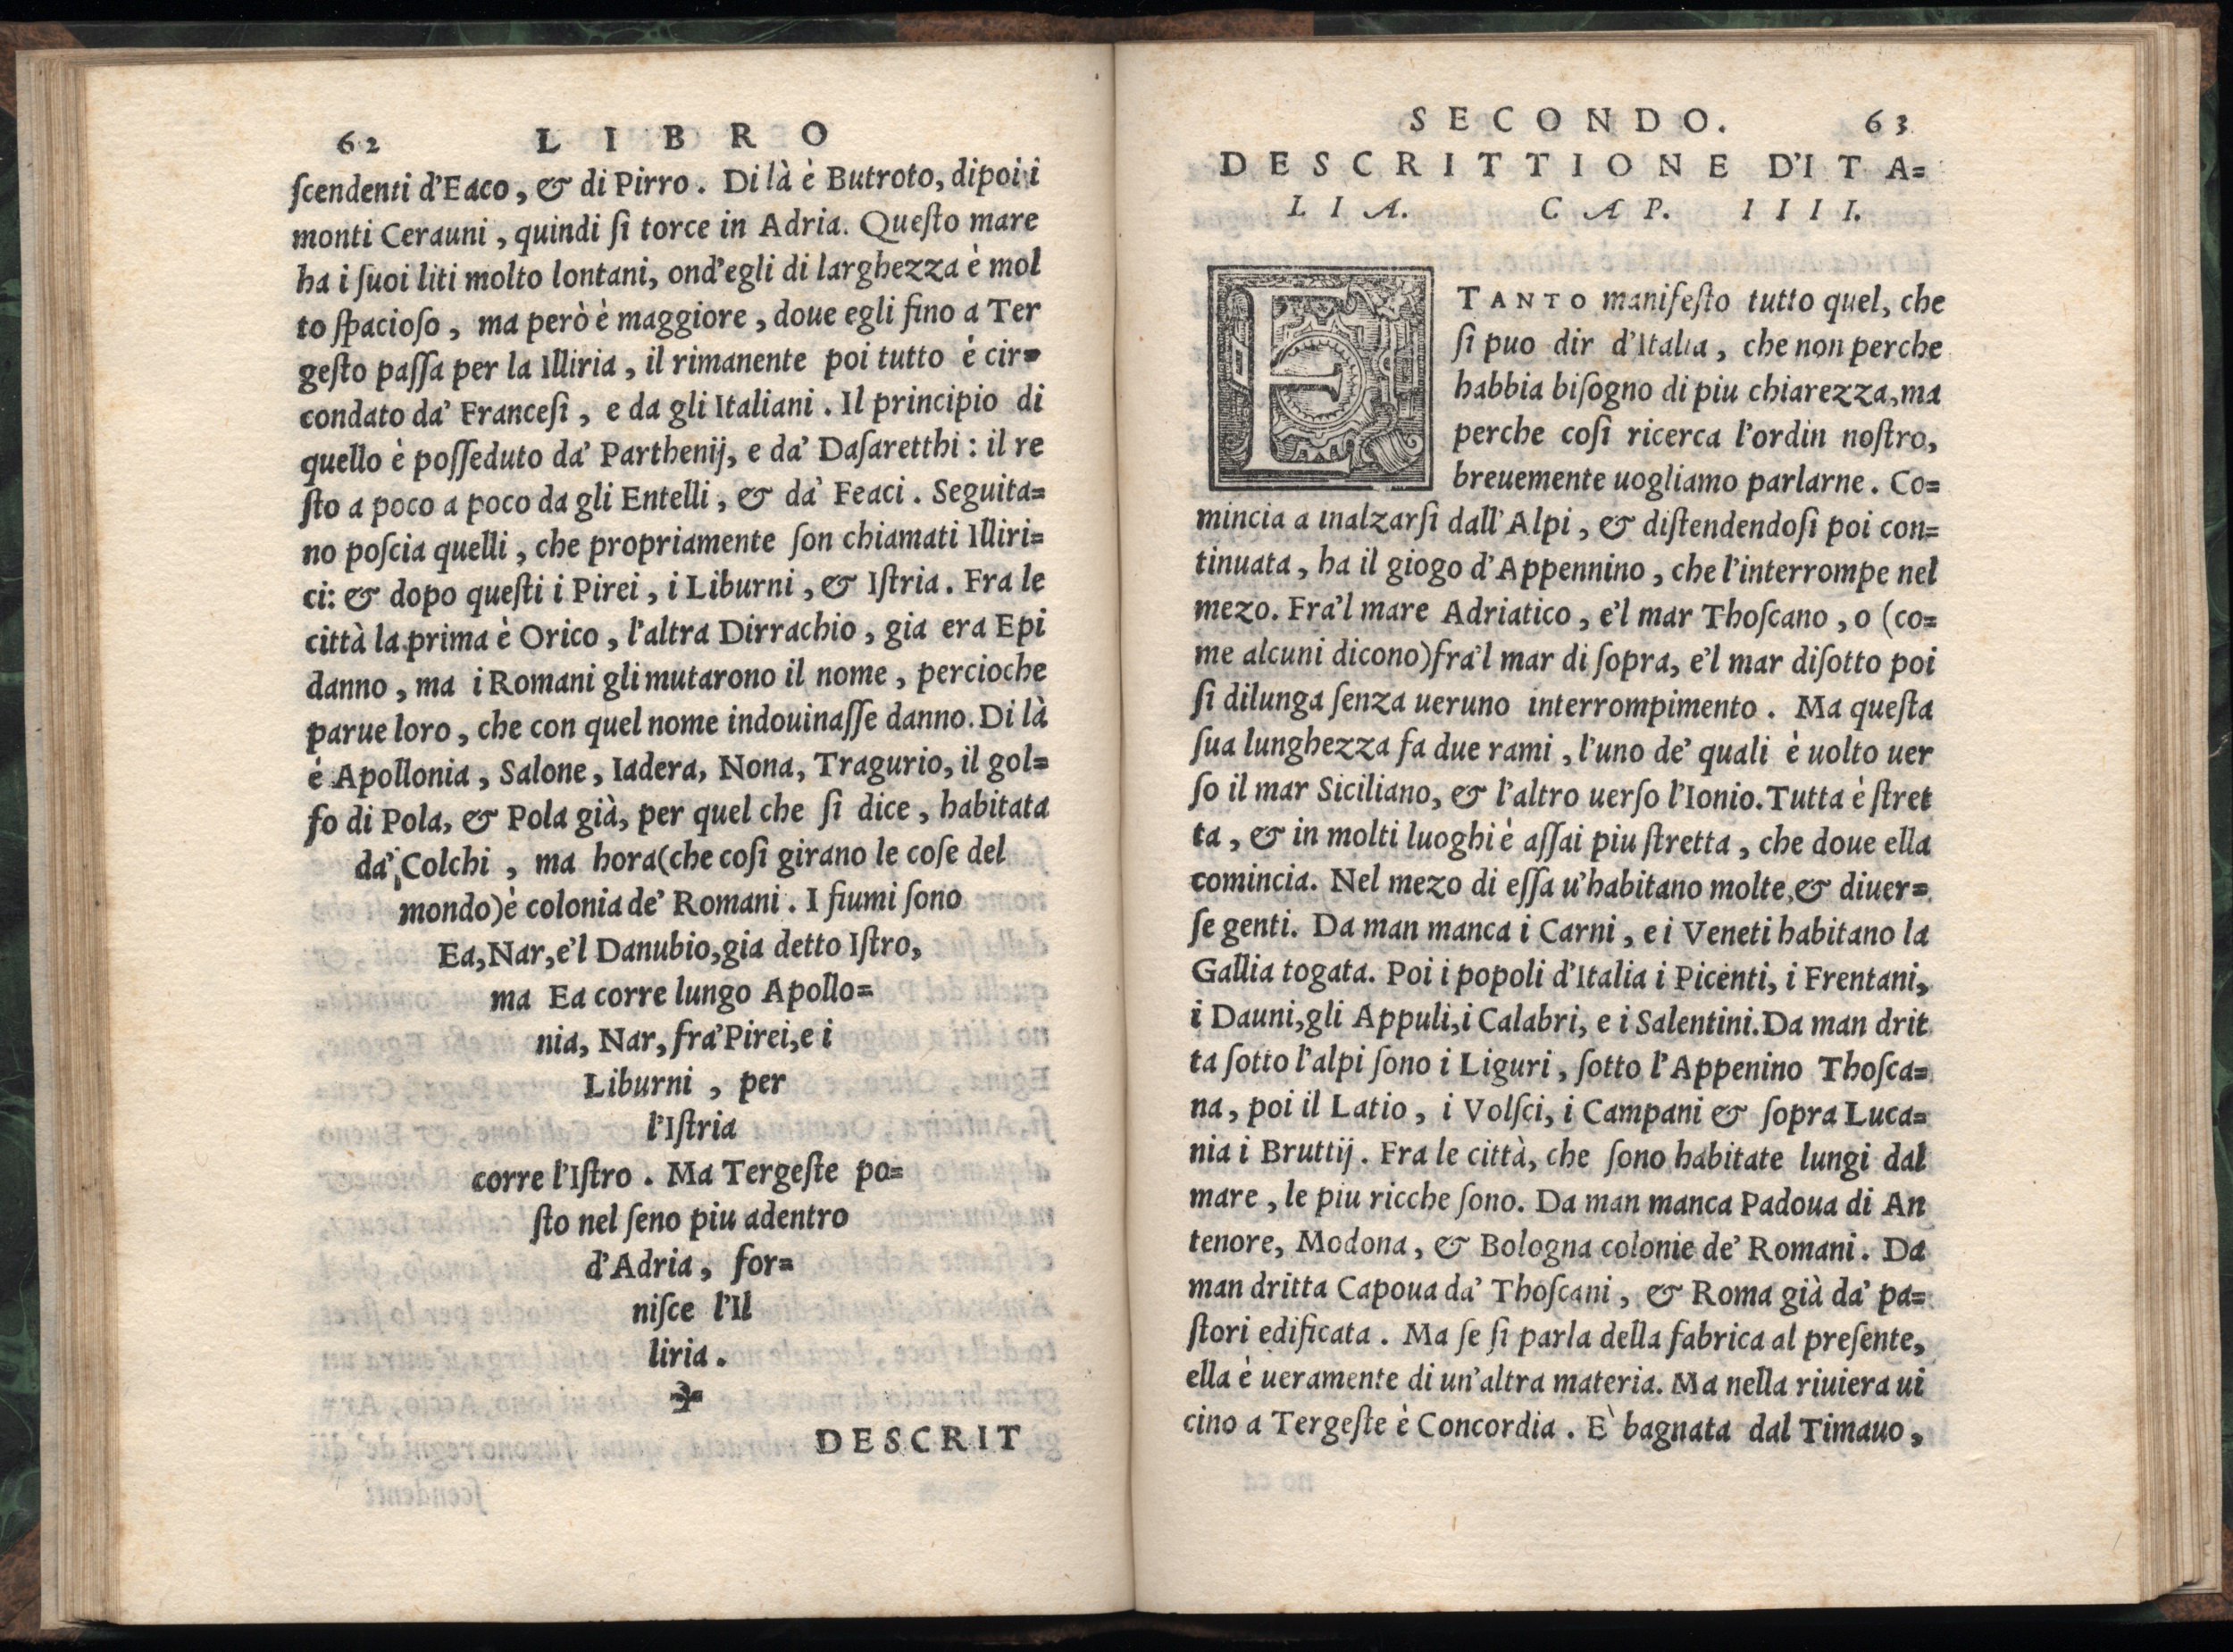 62 LIBRO
ſcendenti d'Eaco, & di Pirro. Di là è Butroto, dipoi i
monti Cerauni, quindi ſi torce in Adria. Queſto mare
ha i ſuoi liti molto lontani, ond'egli di larghezza è mol
to ſpacioſo, ma però è maggiore, doue egli fino a Ter
geſto paſſa per la Illiria, il rimanente poi tutto è cir=
condato da' Franceſi, e da gli Italiani. Il principio di
quello è poſſeduto da' Parthenij, e da' Daſaretthi: il re
ſto a poco a poco da gli Entelli, & da' Feaci. Seguita=
no poſcia quelli, che propriamente ſon chiamati Illiri=
ci: & dopo queſti i Pirei, i Liburni, & Iſtria. Fra le
città la prima è Orico, l'altra Dirrachio, gia era Epi
danno, ma i Romani gli mutarono il nome, percioche
parue loro, che con quel nome indouinaſſe danno. Di là
è Apollonia, Salone, Iadera, Nona, Tragurio, il gol=
fo di Pola, & Pola già, per quel che ſi dice, habitata
da' Colchi, ma hora (che coſi girano le coſe del
mondo) è colonia de' Romani. I fiumi ſono
Ea, Nar, e'l Danubio, gia detto Iſtro,
ma Ea corre lungo Apollo=
nia, Nar, fra' Pirei, e i
Liburni, per
l'Iſtria
corre l'Iſtro. Ma Tergeſte po=
ſto nel ſeno piu adentro
d'Adria, for=
niſce l'Il
liria.
DESCRIT
SECONDO. 63
DESCRITTIONE D'ITA=
LIA. CAP. IIII.
E TANTO manifeſto tutto quel, che
ſi puo dir d'Italia, che non perche
habbia biſogno di piu chiarezza, ma
perche coſi ricerca l'ordin noſtro,
breuemente uogliamo parlarne. Co=
mincia a inalzarſi dall'Alpi, & diſtendendoſi poi con=
tinuata, ha il giogo d'Appennino, che l'interrompe nel
mezo. Fra'l mare Adriatico, e'l mar Thoſcano, o (co=
me alcuni dicono) fra'l mar di ſopra, e'l mar diſotto poi
ſi dilunga ſenza ueruno interrompimento. Ma queſta
ſua lunghezza fa due rami, l'uno de' quali è uolto uer
ſo il mar Siciliano, & l'altro uerſo l'Ionio. Tutta è ſtret
ta, & in molti luoghi è aſſai piu ſtretta, che doue ella
comincia. Nel mezo di eſſa u'habitano molte, & diuer=
ſe genti. Da man manca i Carni, e i Veneti habitano la
Gallia togata. Poi i popoli d'Italia i Picenti, i Frentani,
i Dauni, gli Appuli, i Calabri, e i Salentini. Da man drit
ta ſotto l'alpi ſono i Liguri, ſotto l'Appenino Thoſca=
na, poi il Latio, i Volſci, i Campani & ſopra Luca=
nia i Bruttij. Fra le città, che ſono habitate lungi dal
mare, le piu ricche ſono. Da man manca Padoua di An
tenore, Modona, & Bologna colonie de' Romani. Da
man dritta Capoua da' Thoſcani, & Roma già da' pa=
ſtori edificata. Ma ſe ſi parla della fabrica al preſente,
ella è ueramente di un'altra materia. Ma nella riuiera ui
cino a Tergeſte è Concordia. E' bagnata dal Timauo,